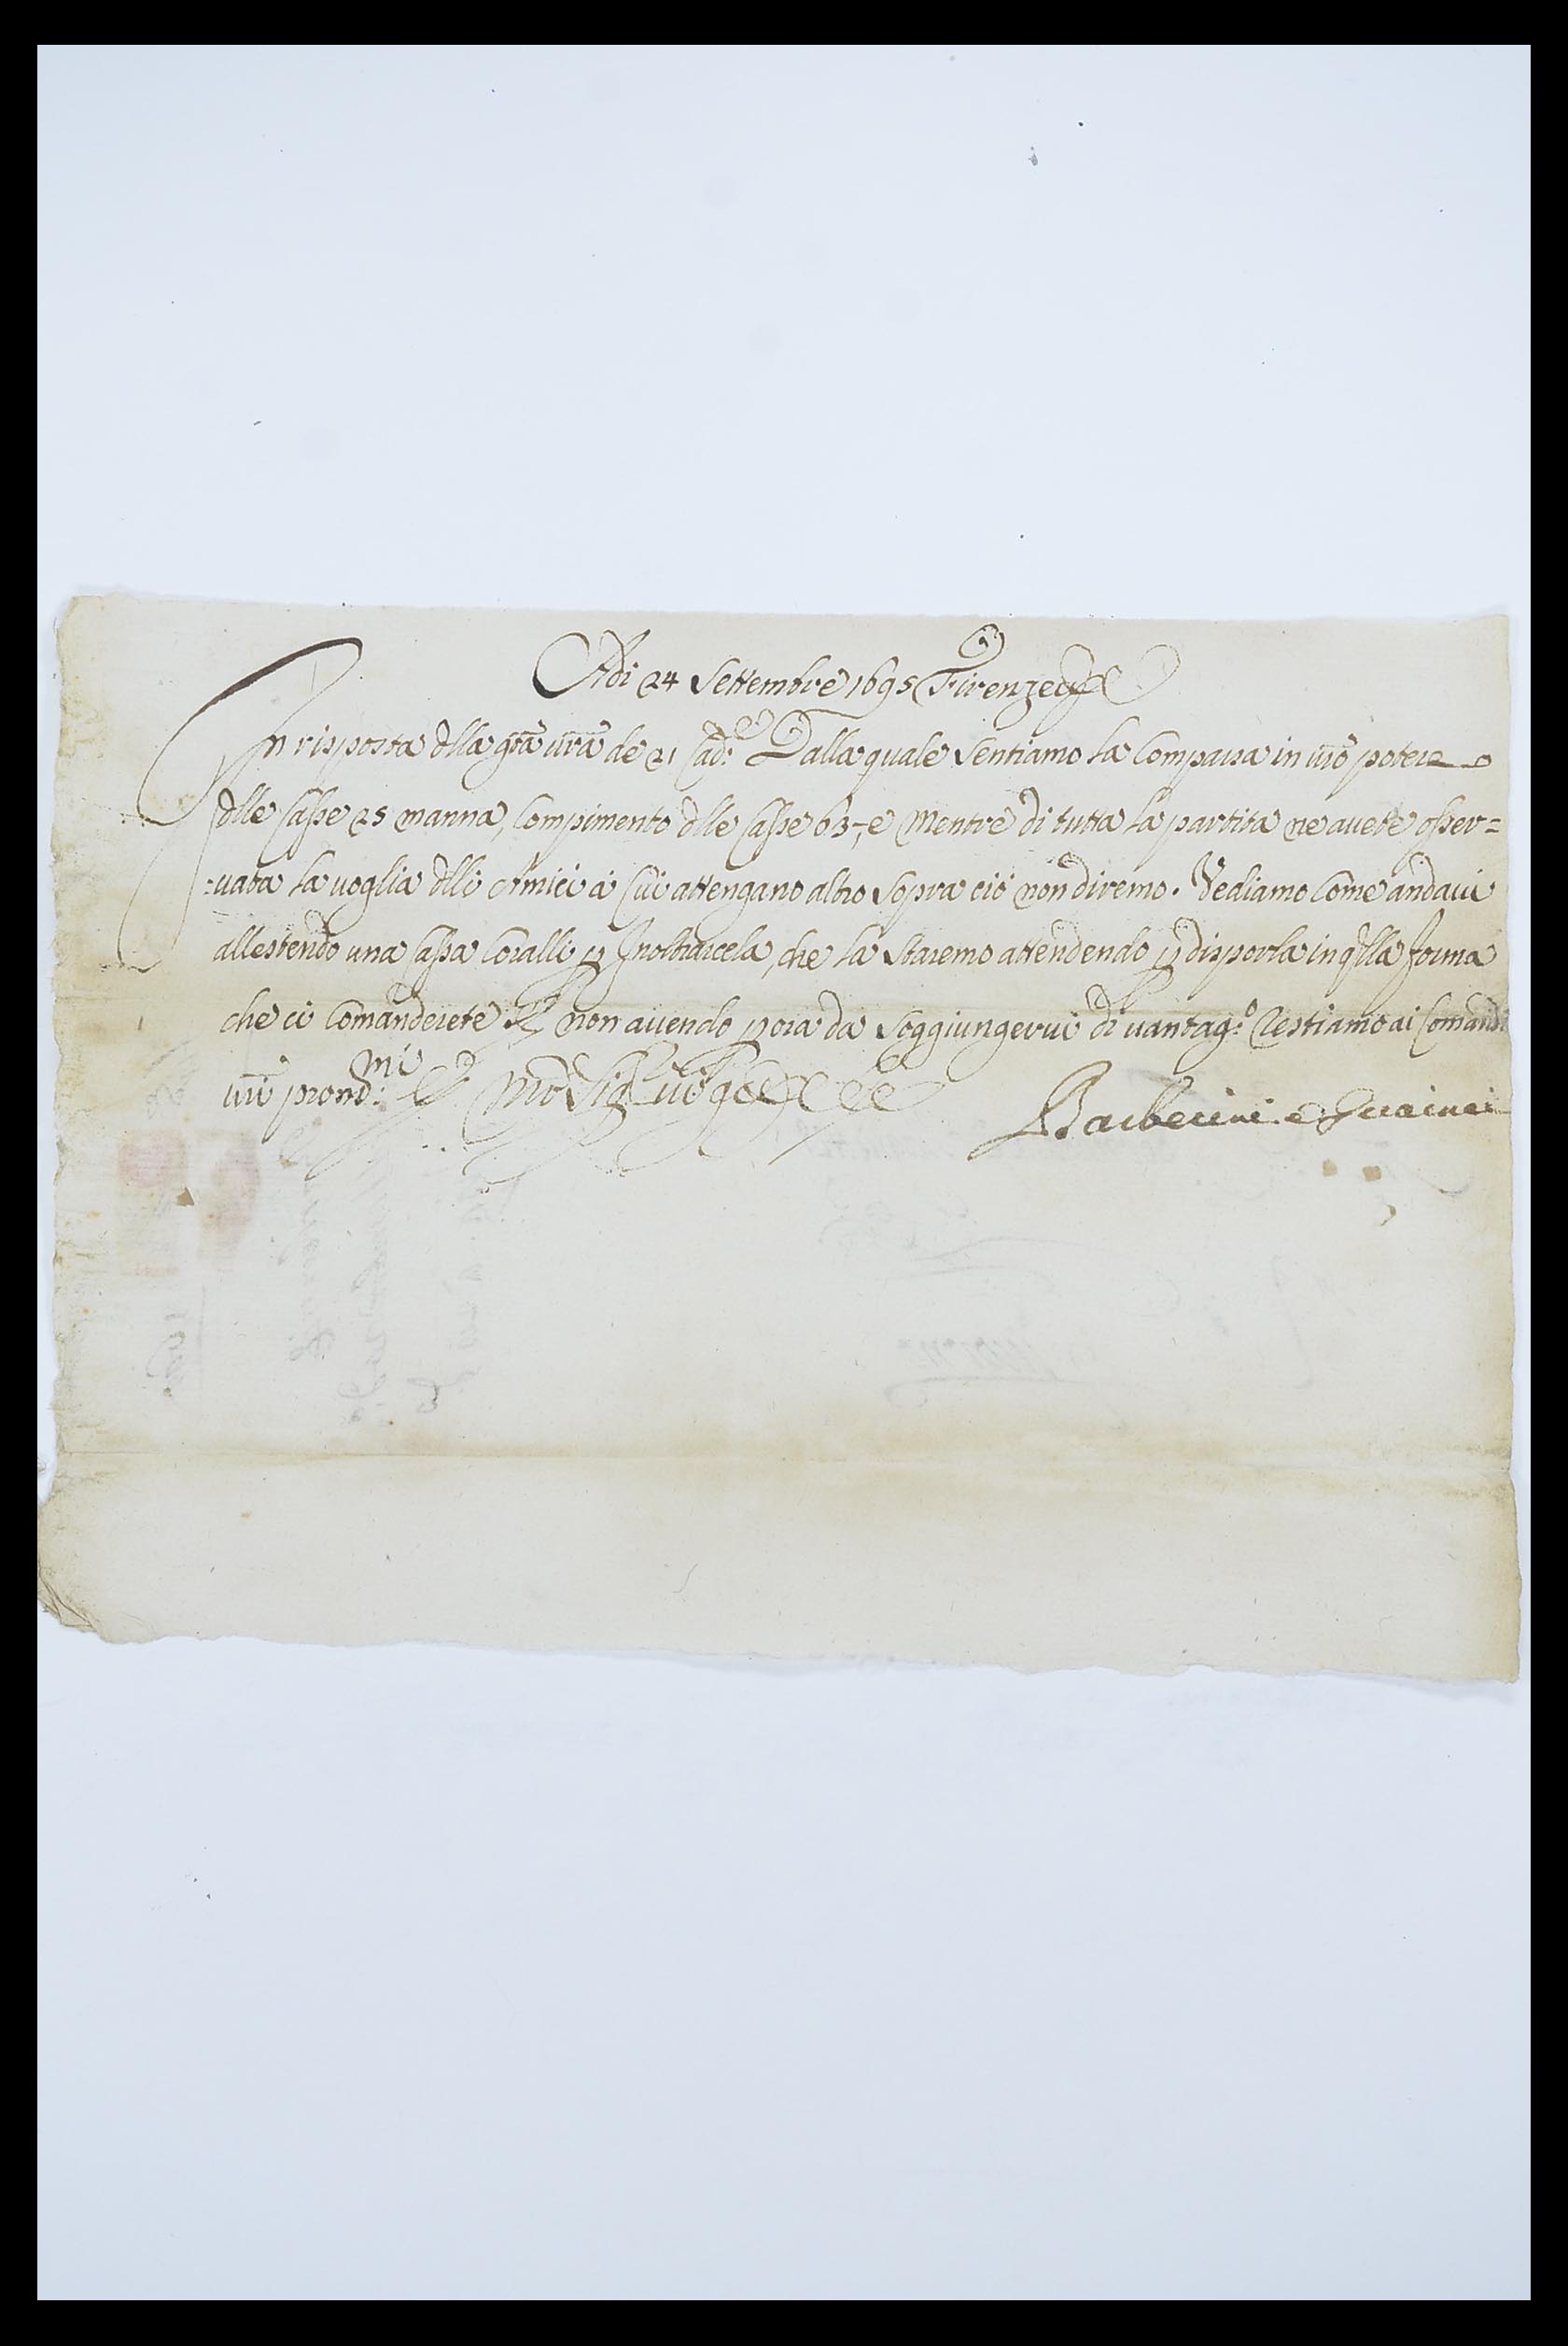 Adi 24 Settembre 1695 Firenze
In risposta dlla grã vrã de 21 Cad.e Dalla quale Sentiamo la Comparsa in vrõ potere
dlle Casse 25 manna, Compimento dlle Casse 63-, e Mentre di tutta la partita ne avete osser=
=vata la voglia dlli Amici a Cui attengano altro Sopra ciò non diremo. Vediamo Come andavi
allestendo una Cassa Coralli p Inoltrarcela, che la Staremo attendendo p disporla in qlla forma
che ci Comanderete e non avendo p ora da Soggiungervi di vantag.o Restiamo ai Comandi
vrĩ pront.mi
Barberini e